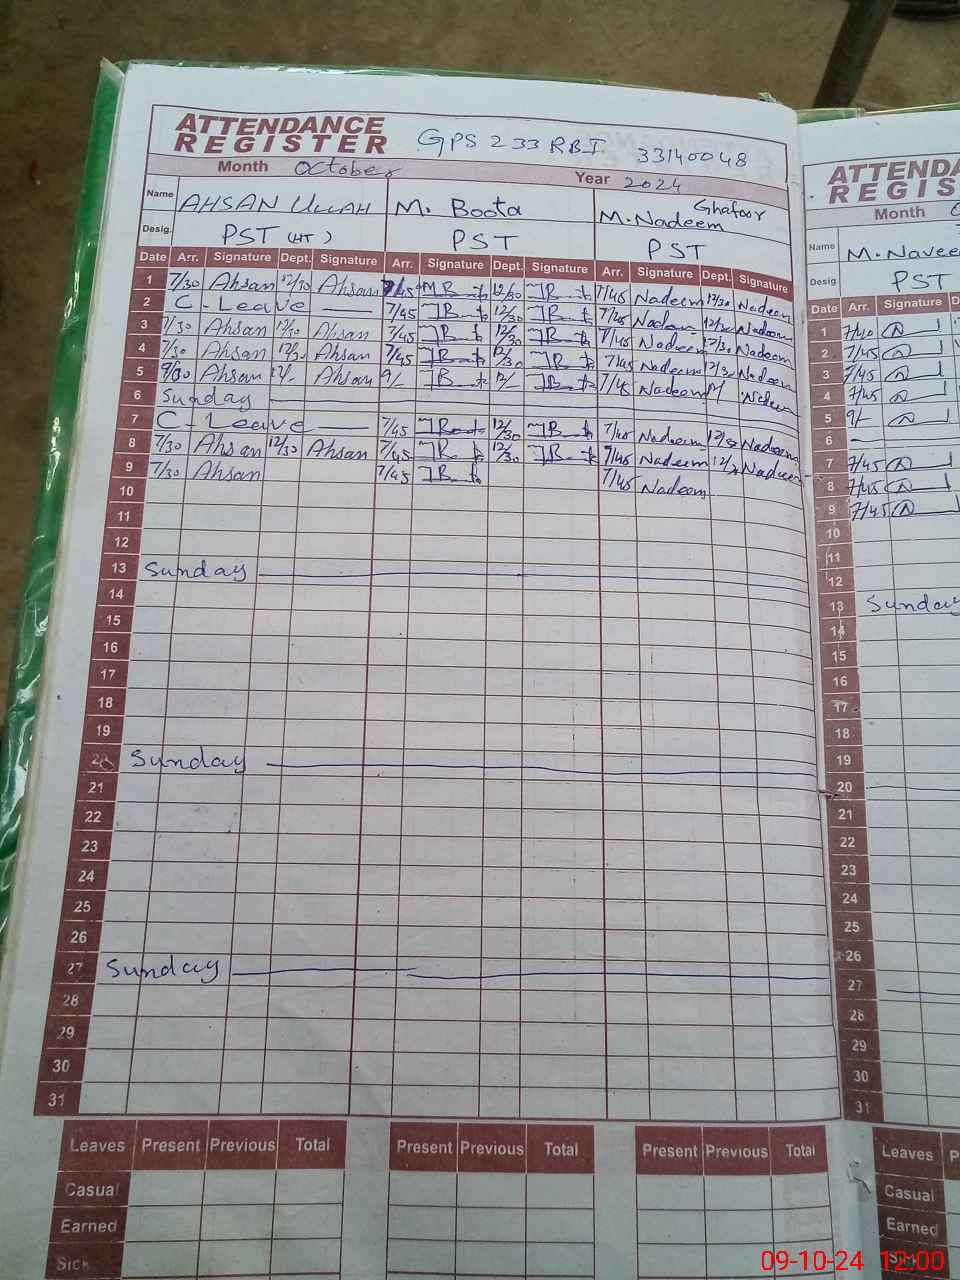 ATTENDANCE REGISTER GPS 233 RB I 33140048
Month October Year 2024
Name AHSAN ULLAH M. Boota M. Nadeem Ghafoor
Desig. PST (HT) PST PST
Date Arr. Signature Dept. Signature Arr. Signature Dept. Signature Arr. Signature Dept. Signature
1 7/30 Ahsan 12/30 Ahsan 7/45 12/30 7/45 Nadeem 12/30 Nadeem
2 C-Leave 7/45 12/30 7/45 Nadeem Nadeem
3 7/30 Ahsan 12/30 Ahsan 7/45 12/30 7/45 Nadeem 12/30 Nadeem
4 7/30 Ahsan Ahsan 7/45 12/30 7/45 Nadeem 12/30 Nadeem
5 Ahsan 12/- Ahsan 9/- 12/- Nadeem
6 Sunday
7 C-Leave 7/45 12/30 7/45 Nadeem Nadeem
8 7/30 Ahsan 12/30 Ahsan 7/45 12/30 7/45 Nadeem Nadeem
9 7/30 Ahsan 7/45 7/45 Nadeem
10
11
12
13 Sunday
14
15
16
17
18
19
20 Sunday
21
22
23
24
25
26
27 Sunday
28
29
30
31
Leaves Present Previous Total Present Previous Total Present Previous Total
Casual
Earned
Sick
ATTENDA
REGIS
Month
Name M. Navee
Desig PST
Date Arr. Signature
1 7/40
2 7/45
3 7/45
4 7/45
5 9/-
6
7 7/45
8 7/45
9 7/45
10
11
12
13 Sunday
14
15
16
17
18
19
20
21
22
23
24
25
26
27
28
29
30
31
Leaves P
Casual
Earned
Sick
09-10-24 12:00